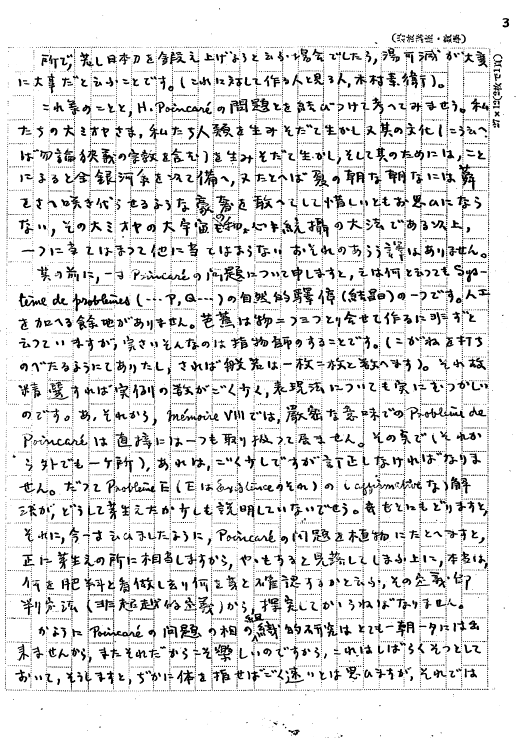 3
(岩波講座・数学)
所で、若し日本刀を鍛え上げようと云ふ場合でしたら、湯可減が大変
に大事だと云ふことです。(これに対して作る人と見る人、木村素衛行)。
これ等のことと、H. Poincaré の問題とを結びつけて考へてみませう。私
たちの大ミオヤさま、私たち人類を生みそだて生かし又其の文化(こう云へ
ば勿論狭義の宗教を含む)を生みそだて生かし、そして其のためには、こと
によると全銀河系を以て備へ、又たとへば夏の朝な朝なには蕣
をさへ咲き代らせるような豪奢を敢へてして惜しいともお思ひになら
ない、その大ミオヤの大宇宙の物心は統攝の大法である以上、
一つに当てはまつて他に当てはまらない おそれのあらう譯はありません。
其の前に、一寸 Poincaré の問題について申しますと、之は何と云つても Sys-
tème de problèmes (… P, Q …) の自然的 (結晶) の一つです。人工
を加へる餘地がありません。芭蕉は物二つ三つとり合せて作るに非ずと
云つていますが、実さいそんなのは指物師のすることです。(こがねを打ち
のべたるようにてありたし、されば般若は一枚二枚と数へます)。それ故
精選すれば実例の数がごく少く、表現法についても実にむつかしい
のです。あ、それから、mémoire VIII では、厳密な意味での Problème de
Poincaré は直接には一つも取り扱つて居ません。その点で(それか
ら外でも一ケ所)、あれは、ごく少しですが訂正しなければなりま
せん。だつて Problème E (E は Existence のそれ) の (affirmative な) 解
決が、どうして芽生えたか少しも説明していないでせう。
それに、今一寸云ひましたように、Poincaré の問題を植物にたとへますと、
正に芽生えの所に相当しますから、やゝもすると見落してしまふ上に、本当は、
何を肥料と看做し去り何を芽と確認するかと云ふ、その定義即
判定法(非超越的定義)から、探索してかゝらねばなりません。
かように Poincaré の問題の相の組織的研究はとても一朝一夕には出
来ませんから、またそれだからこそ楽しいのですから、これはしばらくそつとして
おいて、そうしますと、ぢかに体を指せばごく速いとは思ひますが、それでは